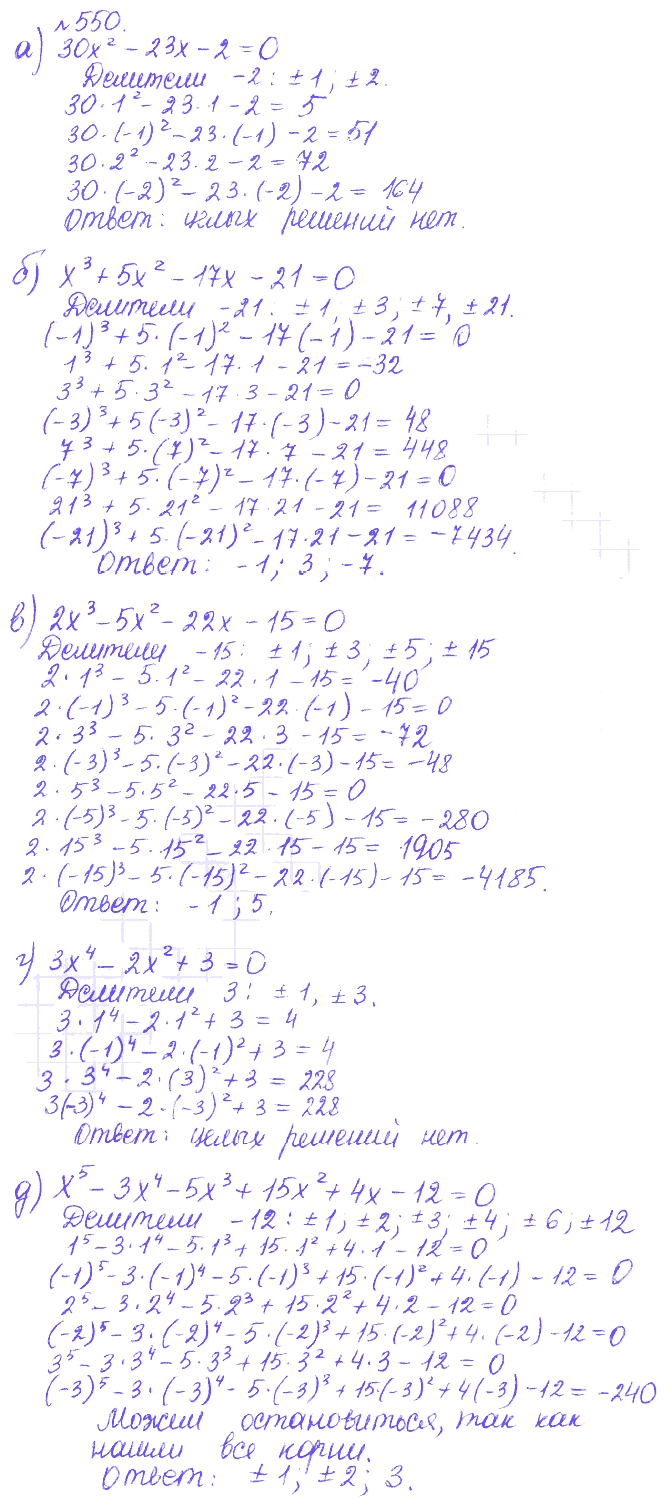 №550.
а) 30x² - 23x - 2 = 0
Делители -2: ±1; ±2.
30·1² - 23·1 - 2 = 5
30·(-1)² - 23·(-1) - 2 = 51
30·2² - 23·2 - 2 = 72
30·(-2)² - 23·(-2) - 2 = 164
Ответ: целых решений нет.
б) x³ + 5x² - 17x - 21 = 0
Делители -21: ±1, ±3; ±7, ±21.
(-1)³ + 5·(-1)² - 17(-1) - 21 = 0
1³ + 5·1² - 17·1 - 21 = -32
3³ + 5·3² - 17·3 - 21 = 0
(-3)³ + 5(-3)² - 17·(-3) - 21 = 48
7³ + 5·(7)² - 17·7 - 21 = 448
(-7)³ + 5·(-7)² - 17·(-7) - 21 = 0
21³ + 5·21² - 17·21 - 21 = 11088
(-21)³ + 5·(-21)² - 17·21 - 21 = -7434.
Ответ: -1; 3; -7.
в) 2x³ - 5x² - 22x - 15 = 0
Делители -15: ±1; ±3; ±5; ±15
2·1³ - 5·1² - 22·1 - 15 = -40
2·(-1)³ - 5·(-1)² - 22·(-1) - 15 = 0
2·3³ - 5·3² - 22·3 - 15 = -72
2·(-3)³ - 5·(-3)² - 22·(-3) - 15 = -48
2·5³ - 5·5² - 22·5 - 15 = 0
2·(-5)³ - 5·(-5)² - 22·(-5) - 15 = -280
2·15³ - 5·15² - 22·15 - 15 = 1905
2·(-15)³ - 5·(-15)² - 22·(-15) - 15 = -4185.
Ответ: -1; 5.
г) 3x⁴ - 2x² + 3 = 0
Делители 3: ±1, ±3.
3·1⁴ - 2·1² + 3 = 4
3·(-1)⁴ - 2·(-1)² + 3 = 4
3·3⁴ - 2·(3)² + 3 = 228
3(-3)⁴ - 2·(-3)² + 3 = 228
Ответ: целых решений нет.
д) x⁵ - 3x⁴ - 5x³ + 15x² + 4x - 12 = 0
Делители -12: ±1; ±2; ±3; ±4; ±6; ±12
1⁵ - 3·1⁴ - 5·1³ + 15·1² + 4·1 - 12 = 0
(-1)⁵ - 3·(-1)⁴ - 5·(-1)³ + 15·(-1)² + 4·(-1) - 12 = 0
2⁵ - 3·2⁴ - 5·2³ + 15·2² + 4·2 - 12 = 0
(-2)⁵ - 3·(-2)⁴ - 5·(-2)³ + 15·(-2)² + 4·(-2) - 12 = 0
3⁵ - 3·3⁴ - 5·3³ + 15·3² + 4·3 - 12 = 0
(-3)⁵ - 3·(-3)⁴ - 5·(-3)³ + 15·(-3)² + 4(-3) - 12 = -240
Можем остановиться, так как
нашли все корни.
Ответ: ±1; ±2; 3.